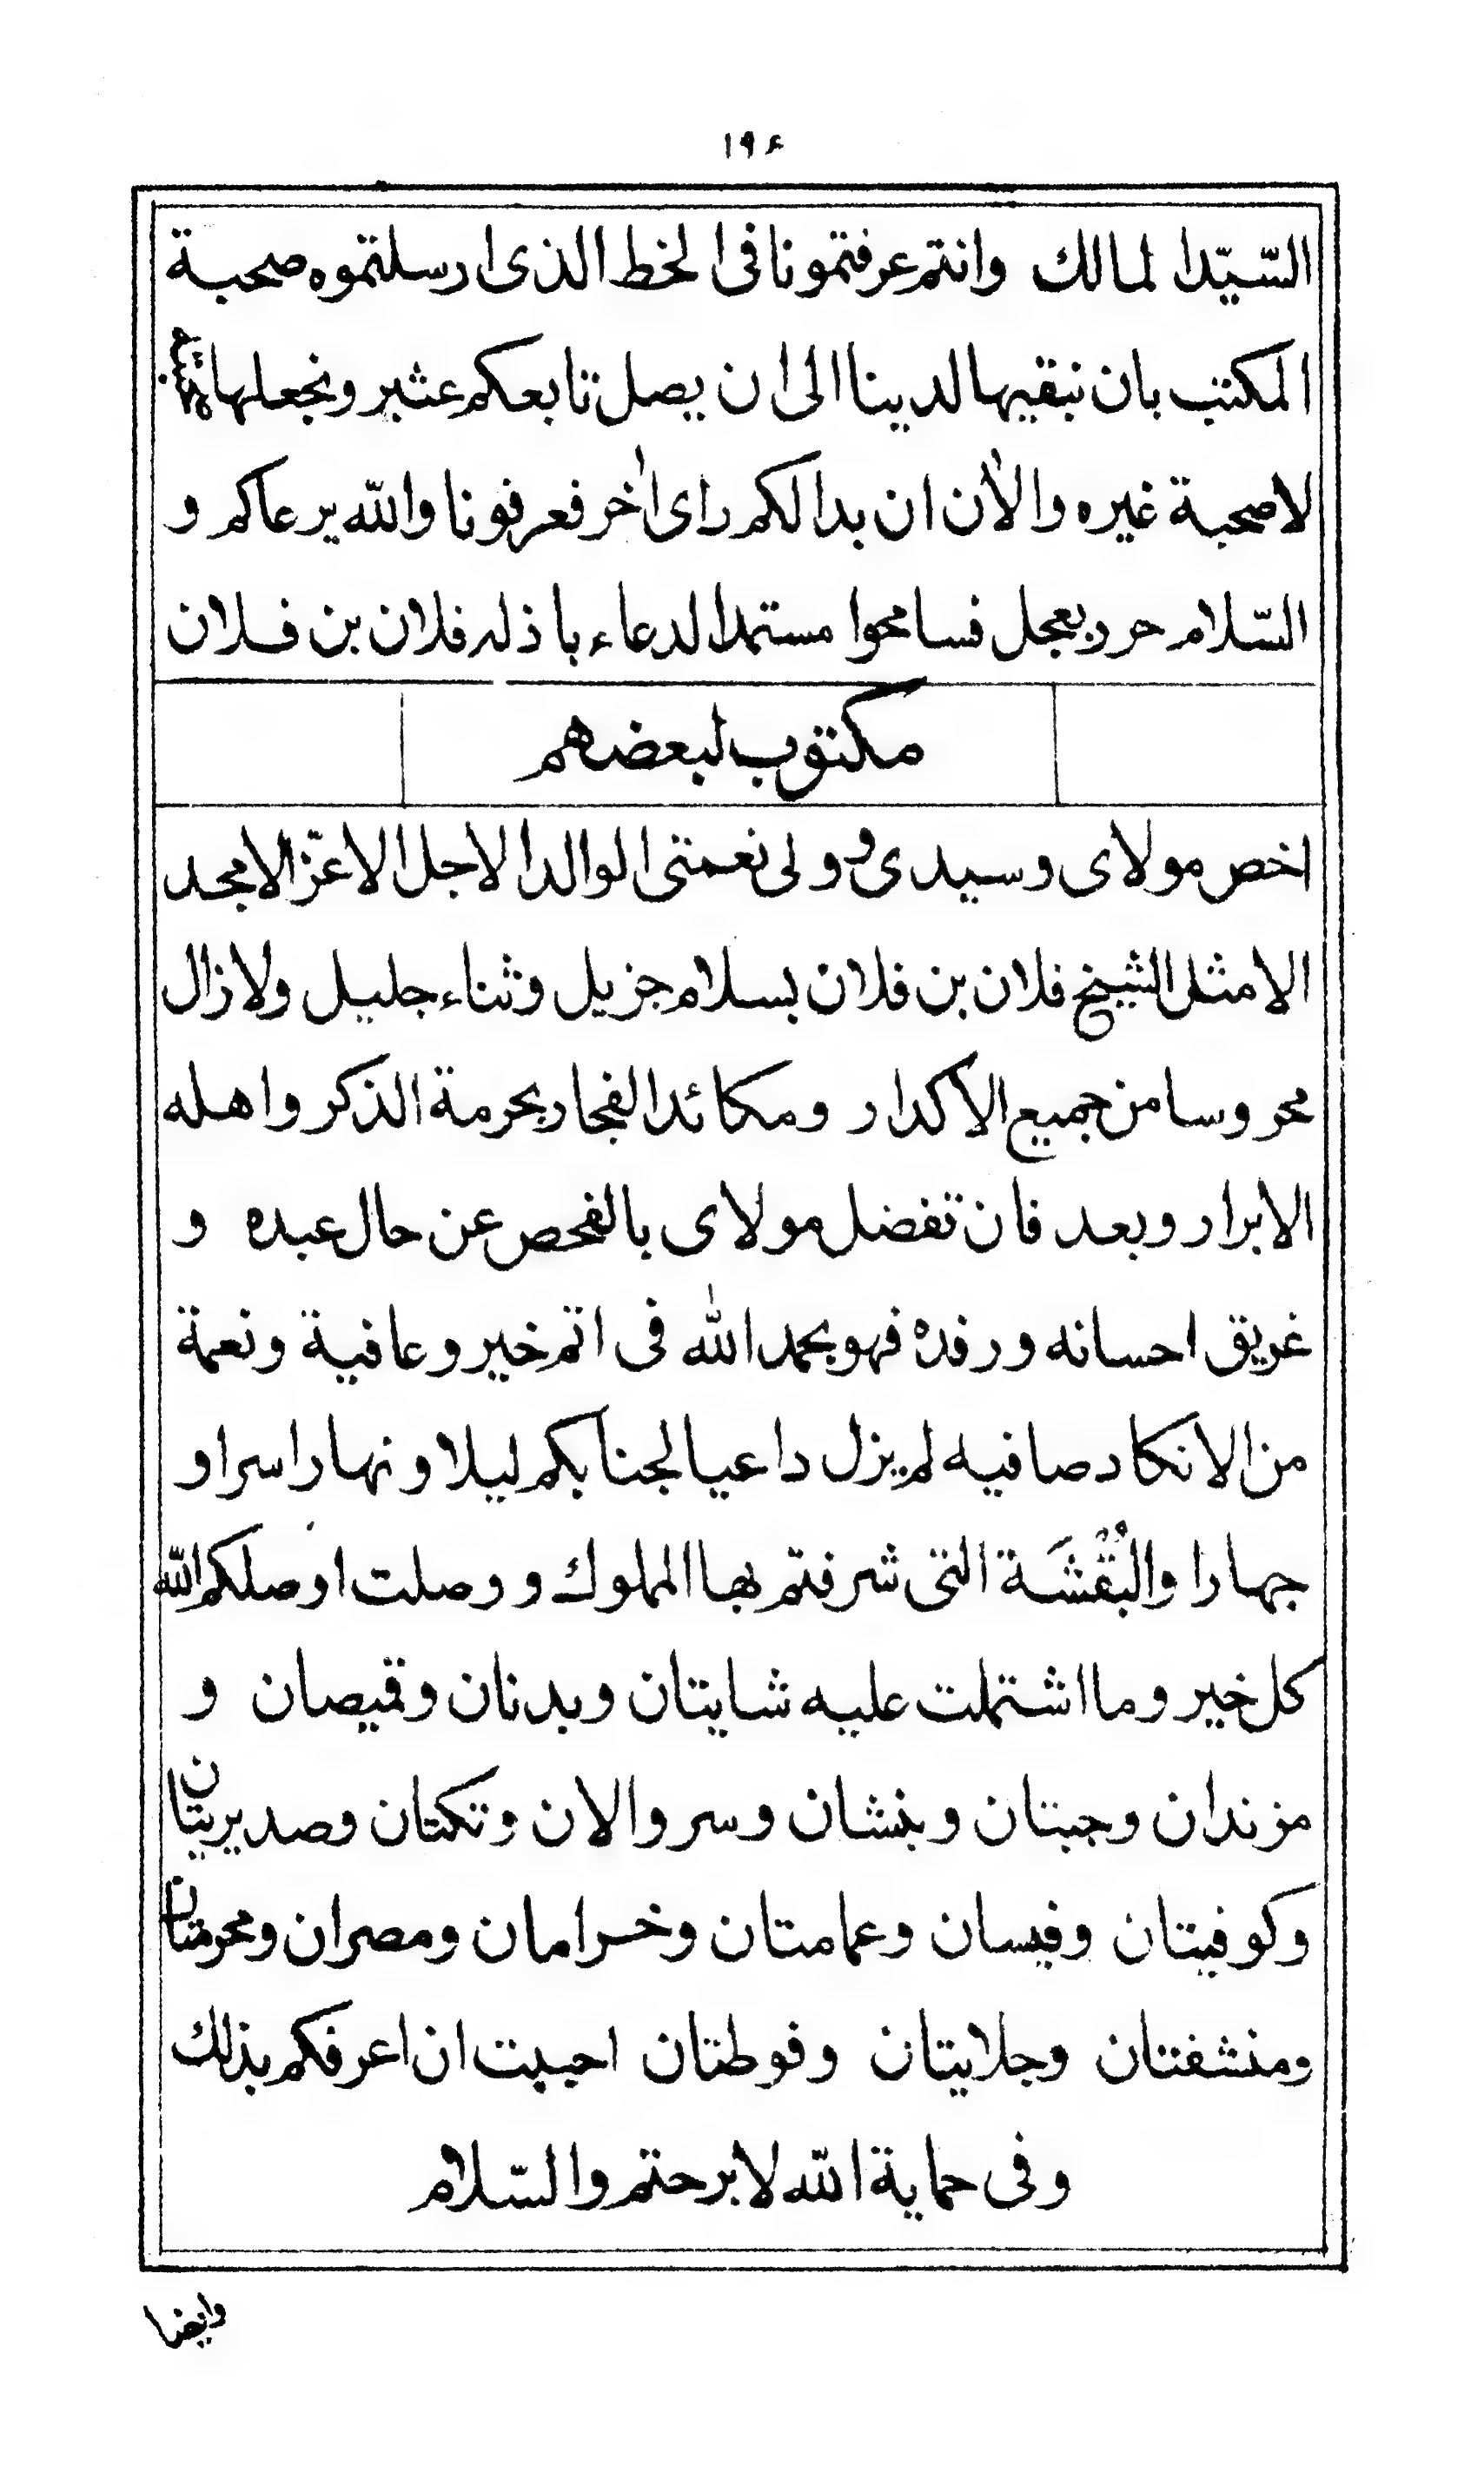 ١٩٤
السّيّد المالك وانتم عرفتمونا فى الخط الذى ارسلتموه صحبة
المكتب بان نبقيها لدينا الى ان يصل تابعكم عثبر ونجعلها
لا صحبة غيره والأن ان بدا لكم راى أخر فعرفونا والله يرعاكم و
السّلام حرر بعجل فسامحوا مستمد الدعاء باذله فلان بن فلان
مكتوب لبعضهم
اخص مولاى وسيدى و ولى نعمتى الوالد الاجل الاعزّ الامجد
الامثل الشيخ فلان بن فلان بسلام جزيل وثناء جليل ولازال
محروسا من جميع الاكدار ومكائد الفجار بحرمة الذكر واهله
الابرار وبعد فان تفضل مولاى بالفحص عن حال عبده و
غريق احسانه ورفده فهو بحمد الله فى اتم خير وعافية ونعمة
من الانكاد صافيه لم يزل داعيا لجنابكم ليلا ونهارا سرا و
جهارا والبُقْشَة التى شرفتم بها المملوك ووصلت اوصلكم الله
كل خير وما اشتملت عليه شايتان وبدنان وقميصان و
مزندان وجبتان وبنشان وسروالان وتكتان وصديريتان
وكوفيتان وفيسان وعمامتان وخرامان ومصران ومحرمتان
ومنشفتان وجلابيتان وفوطتان احببت ان اعرفكم بذلك
وفى حماية الله لا برحتم والسّلام
وايضا